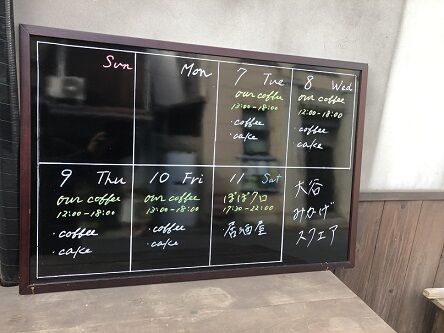 Sun
Mon
7 Tue
our coffee
12:00-18:00
・coffee
・cake
8 Wed
our coffee
12:00-18:00
・coffee
・cake
9 Thu
our coffee
12:00-18:00
・coffee
・cake
10 Fri
our coffee
12:00-18:00
・coffee
・cake
11 Sat
ぽぽクロ
17:30-22:00
居酒屋
大谷
みかげ
スクエア